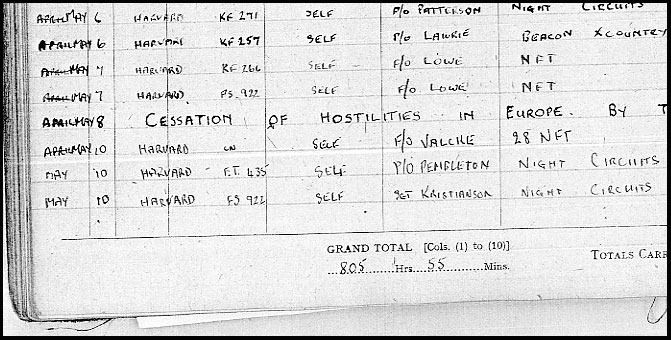 APRIL MAY 6 HARVARD KF 271 SELF F/O PATTERSON NIGHT CIRCUITS
APRIL MAY 6 HARVARD KF 257 SELF F/O LAWRIE BEACON XCOUNTRY
APRIL MAY 7 HARVARD KF 266 SELF F/O LOWE NFT
APRIL MAY 7 HARVARD FS 922 SELF F/O LOWE NFT
APRIL MAY 8 CESSATION OF HOSTILITIES IN EUROPE. BY T
APRIL MAY 10 HARVARD SELF F/O 28 NFT
MAY 10 HARVARD FT 435 SELF P/O PEMBLETON NIGHT CIRCUITS
MAY 10 HARVARD FS 922 SELF SGT KRISTIANSON NIGHT CIRCUITS
GRAND TOTAL [Cols. (1) to (10)]
805 Hrs. 55 Mins.
TOTALS CARR